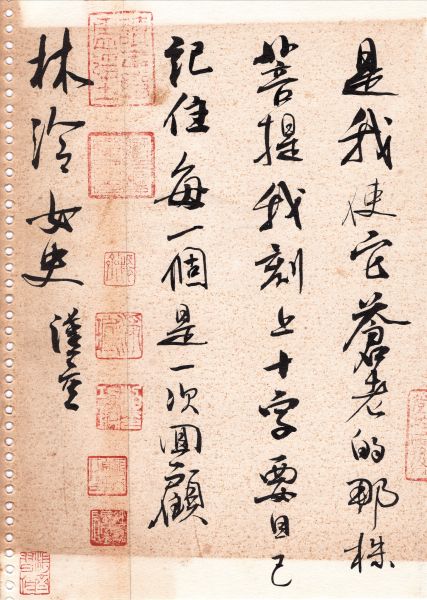 是我使它蒼老的那株
菩提我刻上十字要自己
記住每一個是一次回顧
林泠女史 漢